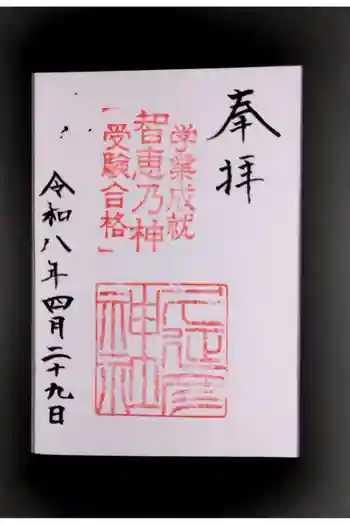 奉拝
学業成就
智恵乃神
「受験合格」
神社
令和八年四月二十九日